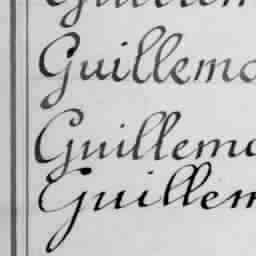 Guillemo
Guillemo
Guillem